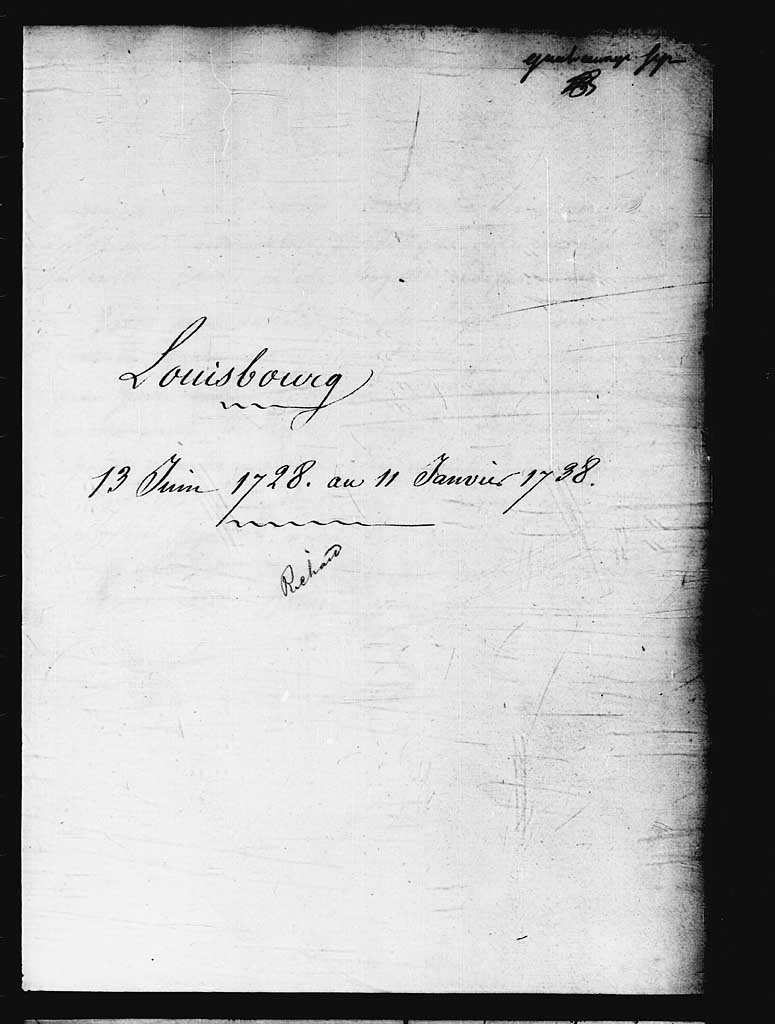 Louisbourg
13 Juin 1728. au 11 Janvier 1738.
Richard